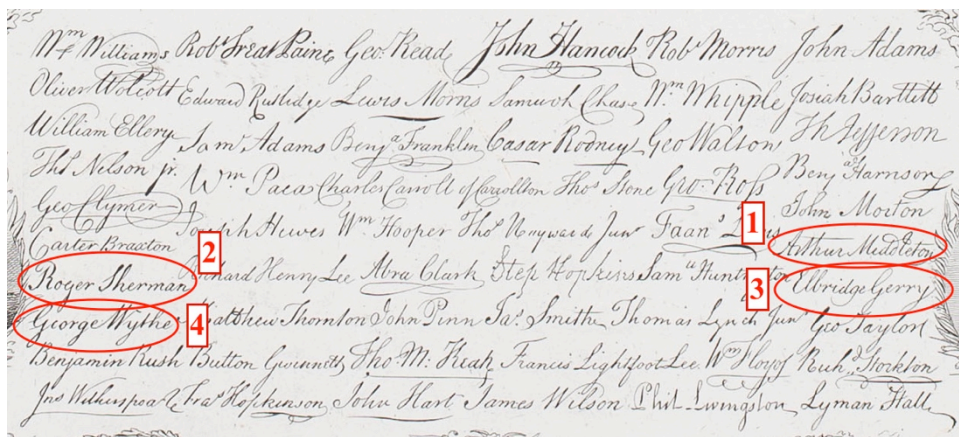 Wm Williams Robt Treat Paine Geo. Read John Hancock Robt Morris John Adams
Oliver Wolcott Edward Rutledge Lewis Morris Samuel Chase Wm Whipple Josiah Bartlett
William Ellery Sam Adams Benja Franklin Cæsar Rodney Geo Walton Th Jefferson
Ths Nelson jr. Wm Paca Charles Carroll of Carrollton Thos Stone Geo. Ross Benja Harrison
Geo Clymer Joseph Hewes Wm Hooper Thos Heyward Junr 1 John Morton
Carter Braxton 2 Arthur Middleton
Roger Sherman Henry Lee Abra Clark Step Hopkins Saml 3 Elbridge Gerry
George Wythe 4 Matthew Thornton John Penn Jas Smith Thomas Lynch Junr Geo Taylor
Benjamin Rush Button Gwinnett Tho M: Kean Francis Lightfoot Lee Wm Richd Stockton
Jno Witherspoon Fras Hopkinson John Hart James Wilson Phil. Livingston Lyman Hall